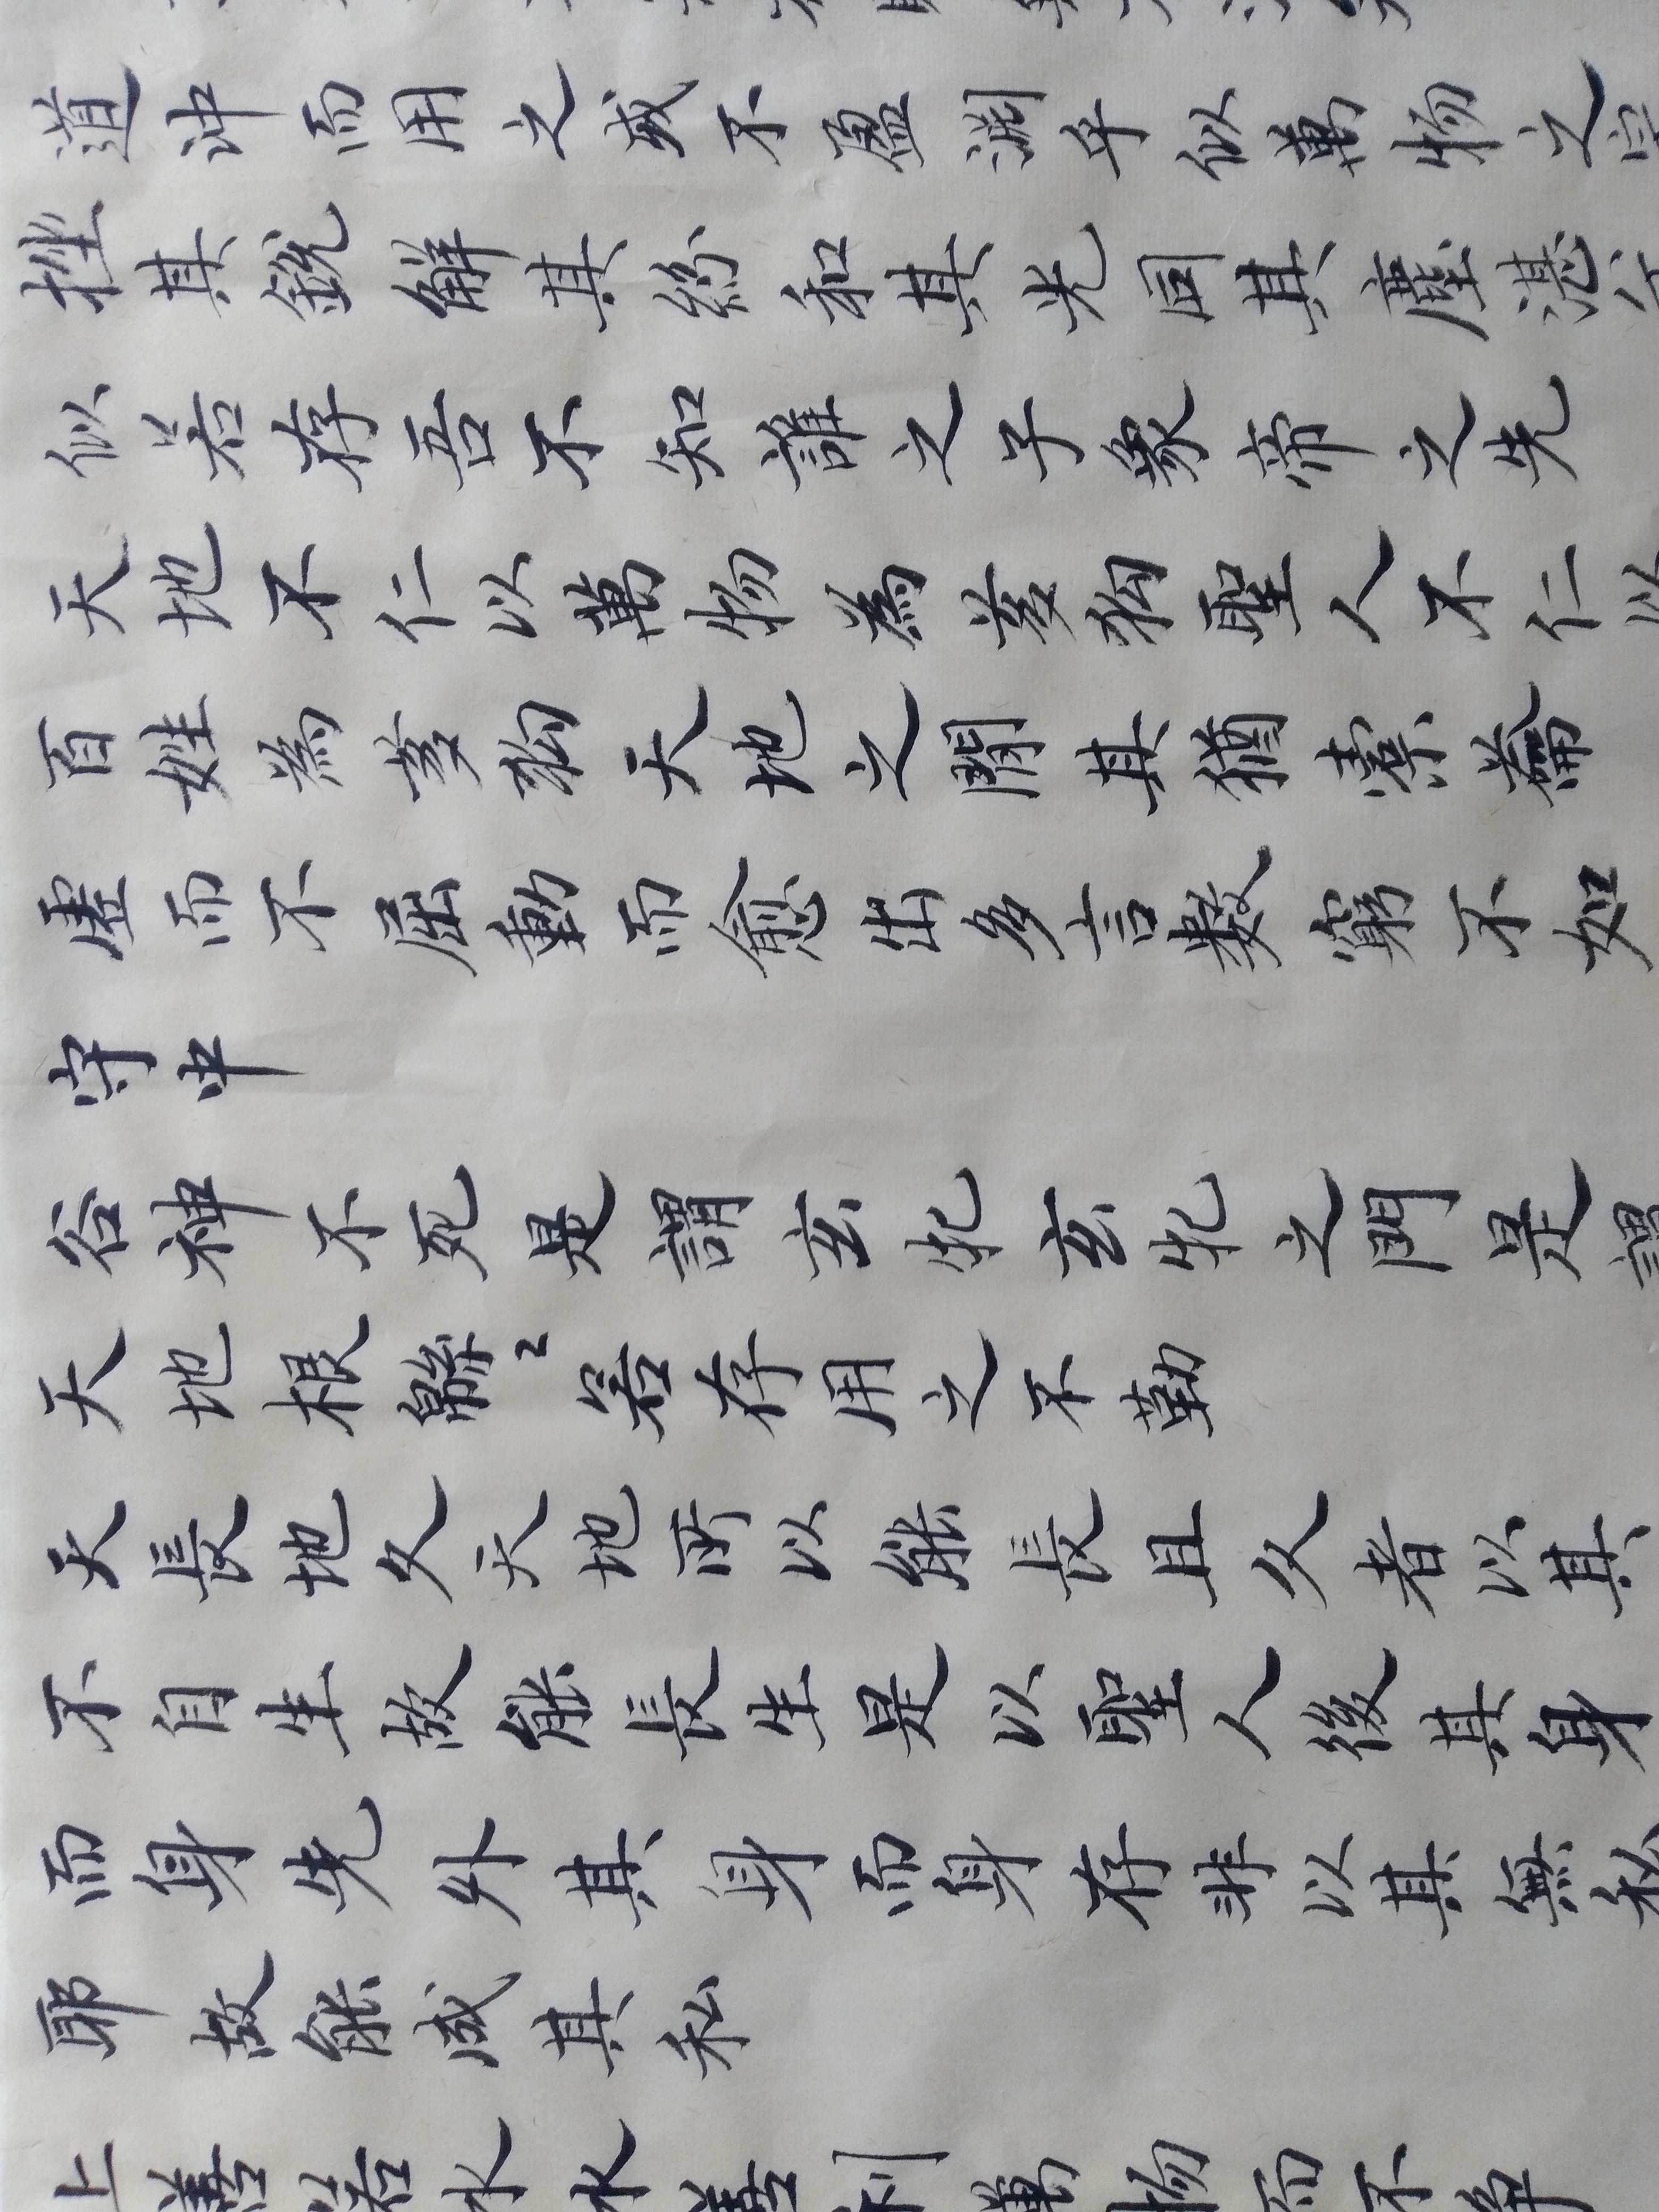 道沖而用之或不盈淵乎似萬物之宗
挫其銳解其紛和其光同其塵湛兮
似若存吾不知誰之子象帝之先
天地不仁以萬物為芻狗聖人不仁以
百姓為芻狗天地之間其猶橐籥
虛而不屈動而愈出多言數窮不如
守中
谷神不死是謂玄牝玄牝之門是謂
天地根綿〻若存用之不勤
天長地久天地所以能長且久者以其
不自生故能長生是以聖人後其身
而身先外其身而身存非以其無私
耶故能成其私
上善若水水善利萬物而不爭